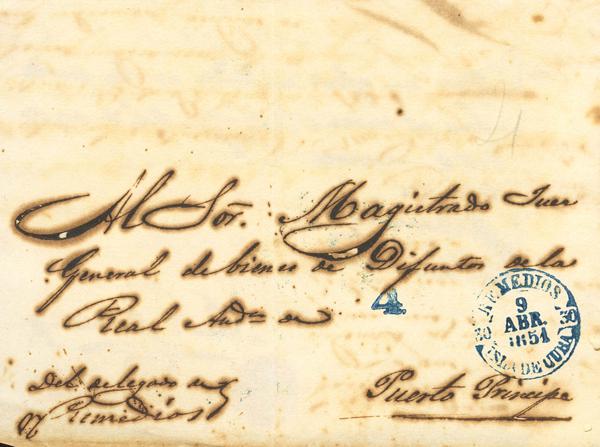 Al Sor. Magistrado Juez
General de bienes de Difuntos de la
Real Auda. de
4
Del delegado de
Remedios
Puerto Principe
REMEDIOS
9
ABR.
1851
30 30
ISLA DE CUBA